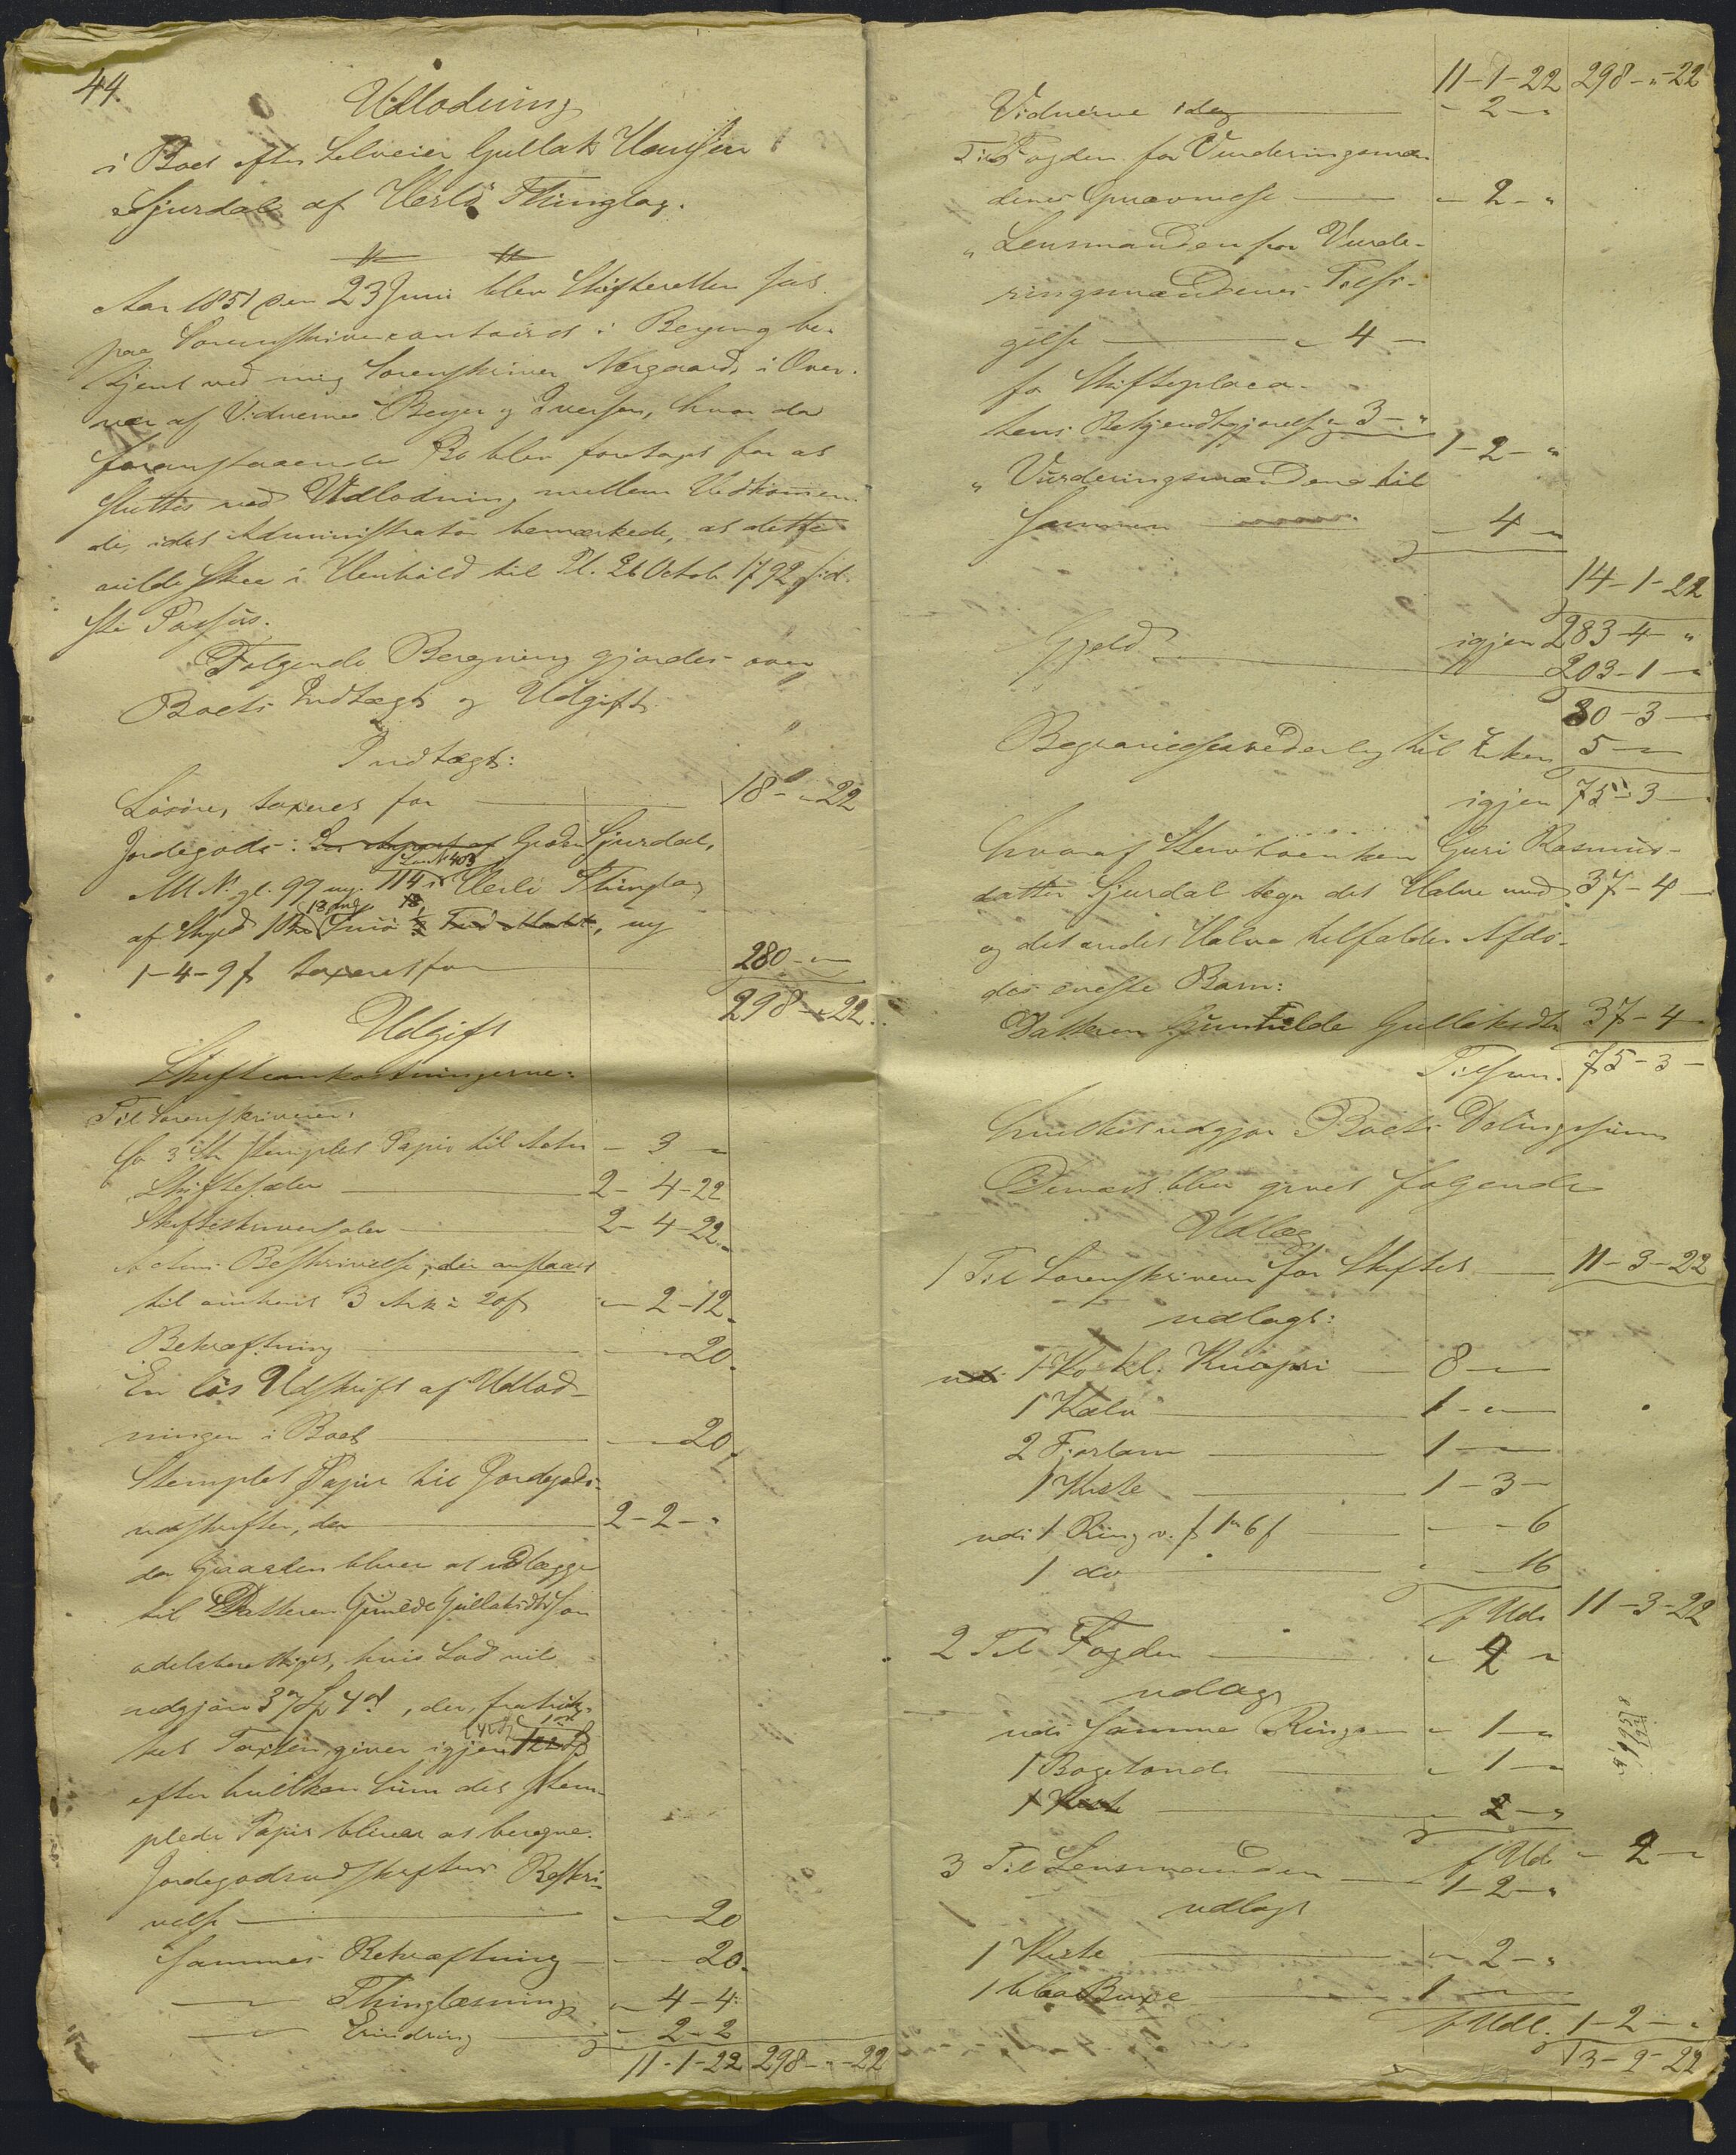 44.
Udlodning
i Boet efter Selveier Gullak Hansen
Sjurdal af Herlø Thinglag.
Aar 1851 den 23 Juni blev Skifteretten sat
paa Sorenskrivercontoiret i Bergen og be-
tjent ved mig Sorenskriver Norgaard, i Over-
vær af Vidnerne Beyer og Iversen, hvor da
foranstaaende Bo blev foretaget for at
sluttes ved Udlodning mellem Vedkommen-
de, idet Administrator bemærkede, at dette
vilde skee i Henhold til Pl. 26 Octob. 1792, sid-
ste Passus.
Følgende Beregning gjordes over
Boets Indtægt og Udgift
Indtægt:
Løsøre, taxeret for 18 - " - 22
Jordegods: Gaarden Sjurdal,
M N. gl. 99 ny. 114 i Herlø Thinglag
af Skyld Smør, ny
1-4-9 f taxeret for 280 - " -
298 - " - 22.
Udgift
Skifteomkostningerne:
Til Sorenskriveren:
for 3 St. stemplet Papir til Acten - 3 -
Skiftesalen 2 - 4 - 22
Skifteskriversalen 2 - 4 - 22
Actens Beskrivelse, der ansaaes
til omtrent 3 Ark à 20 f - 2 - 12
Bekræftning - 20.
En løs Udskrift af Udlod-
ningen i Boet - 20
Stemplet Papir til Jordegods-
udskriften, der 2 - 2 - "
da Gaarden bliver at udlægge
til Datteren Gunilde Gullaksdtr som
odelsberettiget, hvis Lod vil
udgjøre 37 4, der, fratruk-
ket Taxten, giver igjen
efter hvilken Sum det stem-
plede Papir bliver at beregne.
Jordegodsudskriftens Beskri-
velse - 20
Sammes Bekræftning - 20.
Thinglæsning - 4 - 4
Erindring - 2 - 2
11 - 1 - 22 298 - " - 22
11 - 1 - 22 298 - " - 22
Vidnerne idag - 2 - "
Til Fogden for Vurderingsmæn-
denes Opnævnelse - 2 - "
" Lensmanden for Vurde-
ringsmændenes Tilsi-
gelse - 4 -
for Skifteplaca-
tens Bekjendtgjørelse 3 - " 1 - 2 - "
" Vurderingsmændene til
sammen - 4 -
14 - 1 - 22
igjen 283 - 4 - "
Gjeld 203 - 1 -
80 - 3 -
Begravelsesvederlag til Enken 5 -
igjen 75 - 3 -
hvoraf Stervboenken Guri Rasmus-
datter Sjurdal tager det Halve med 37 - 4 -
og det andet Halve tilfalder Afdø-
des eneste Barn:
Datteren Gunhilde Gullaksdtr 37 - 4
Tilsam. 75 - 3 -
hvilket udgjør Boets Delingssum
Dernæst blev gjort følgende
Udlæg
1 Til Sorenskriveren for Skiftet 11 - 3 - 22
udlagt:
1 Ko kl. 8 -
1 Kalv 1 - " -
2 Fjorlam 1 -
1 Kiste 1 - 3 -
udi 1 Ring v. - 6
1 do 16
f Udl. 11 - 3 - 22
2 Til Fogden - 2 -
udlagt
udi samme Ring - 1 -
1 Bogetønde - 1 -
1 Kiste - 2 - "
f Udl. - 2 -
3 Til Lensmanden 1 - 2 - "
udlagt
1 Kiste - 2 - "
1 blaa Buxe 1 -
f Udl. 1 - 2 - "
13 - 2 - 22